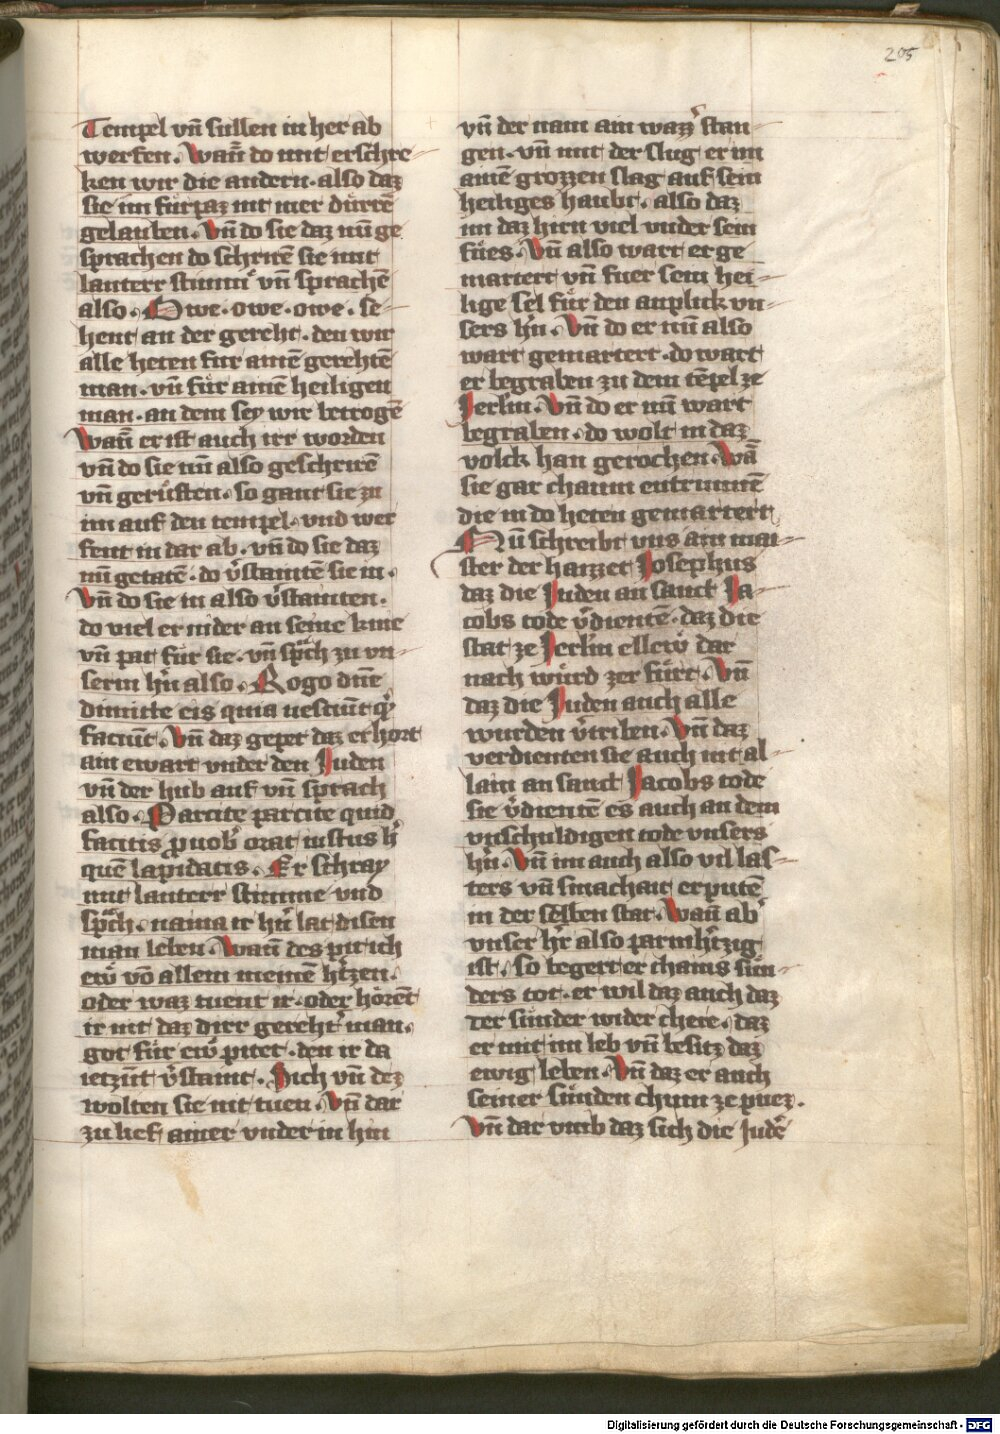 205
Tempel vn̄ sullen in her ab
werfen. Wan̄ do mit erschre-
ken wir die andern. also daz
sie im fürpaz nit mer dürrē
gelauben. Vn̄ do sie daz nū ge
sprachen do schrirē sie mit
lauterr stimm vn̄ sprachē
also. Owe. owe. owe. se-
hent an der gereht. den wir
alle heten für ainē gerehtē
man. vn̄ für ainē heiligen
man. an dem sey wir betrogē
Wan̄ er ist auch irr worden
vn̄ do sie nū also geschrirē
vn̄ gerüften. so gant sie zu
im auf den tempel. vnd wer
fent in dar ab. vn̄ do sie daz
nū getatē. do v̓staintē sie in.
Vn̄ do sie in also v̓stainten.
do viel er nider an seine knie
vn̄ pat für sie. vn̄ sp̄ch zu vn-
serm hr̄n also. Rogo dn̄e
dimitte eis quia nesciūt qͥ
faciūt. Vn̄ daz gepet daz erhort
ain ewart vnder den Juden
vn̄ der hub auf vn̄ sprach
also. Parcite parcite quid
facitis pro uob̓ orat iustus h̓
quē lapidatis. Er schray
mit lauterr stimme vnd
sp̄ch. naina ir hr̄n lat disen
man leben. Wan̄ des pit ich
ew̓ vō allem meinē h̓tzen.
oder waz tuent ir. oder hörēt
ir nit daz dirr gereht̓ man.
got für ew̓ pitet. den ir da
ietzūt v̓staint. Sich vn̄ dez
wolten sie nit tuen. Vn̄ dar
zu lief ainer vnder in hin
vn̄ der nam ain wazz̓ stan-
gen. vn̄ mit der slug er im
ainē grozzen slag auf sein
heiliges haubt. also daz
im daz hirn viel vnder sein
füs. Vn̄ also wart er ge
martert vn̄ fuer sein hei-
lige sel für den anplick vn-
sers hr̄n. Vn̄ do er nū also
wart gemartert. do wart
er begraben zu dem tēpel ze
Jerlm̄. Vn̄ do er nū wart
begraben. do wolt in daz
volck han gerochen. Wā
sie gar chaum entrunnē
die in do heten gemartert
Nū schreibt vns ain mai-
ster der haizzet Josephus
daz die Juden an sanct Ja-
cobs tode v̓dientē. daz die
stat ze Jerlm̄ ellew̓ dar
nach würd zer fürt. Vn̄
daz die Juden auch alle
wurden v̓triben. Vn̄ daz
verdienten sie auch nit al-
lain an sanct Jacobs tode
sie v̓dientē es auch an dem
vnschuldigen tode vnsers
hr̄n. Vn̄ im auch also vil las-
ters vn̄ smachait erputē
in der selben stat. Wan̄ ab̓
vnser hr̄ also parmh̓tzig
ist. so begert er chains sün-
ders tot. er wil daz auch daz
der sünder wider chere. daz
er mit im leb vn̄ besitz daz
ewig leben. Vn̄ daz er auch
seiner sünden chum ze puez.
Vn̄ dar vmb daz sich die Judē
Digitalisierung gefördert durch die Deutsche Forschungsgemeinschaft - DFG